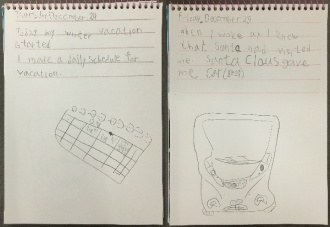 Thursday December 24
Today my winter vacation
started.
I made a daily schedule for
vacation.
Friday, December 25
When I woke up I knew
that Santa had visited
me. Santa Claus gave
me car